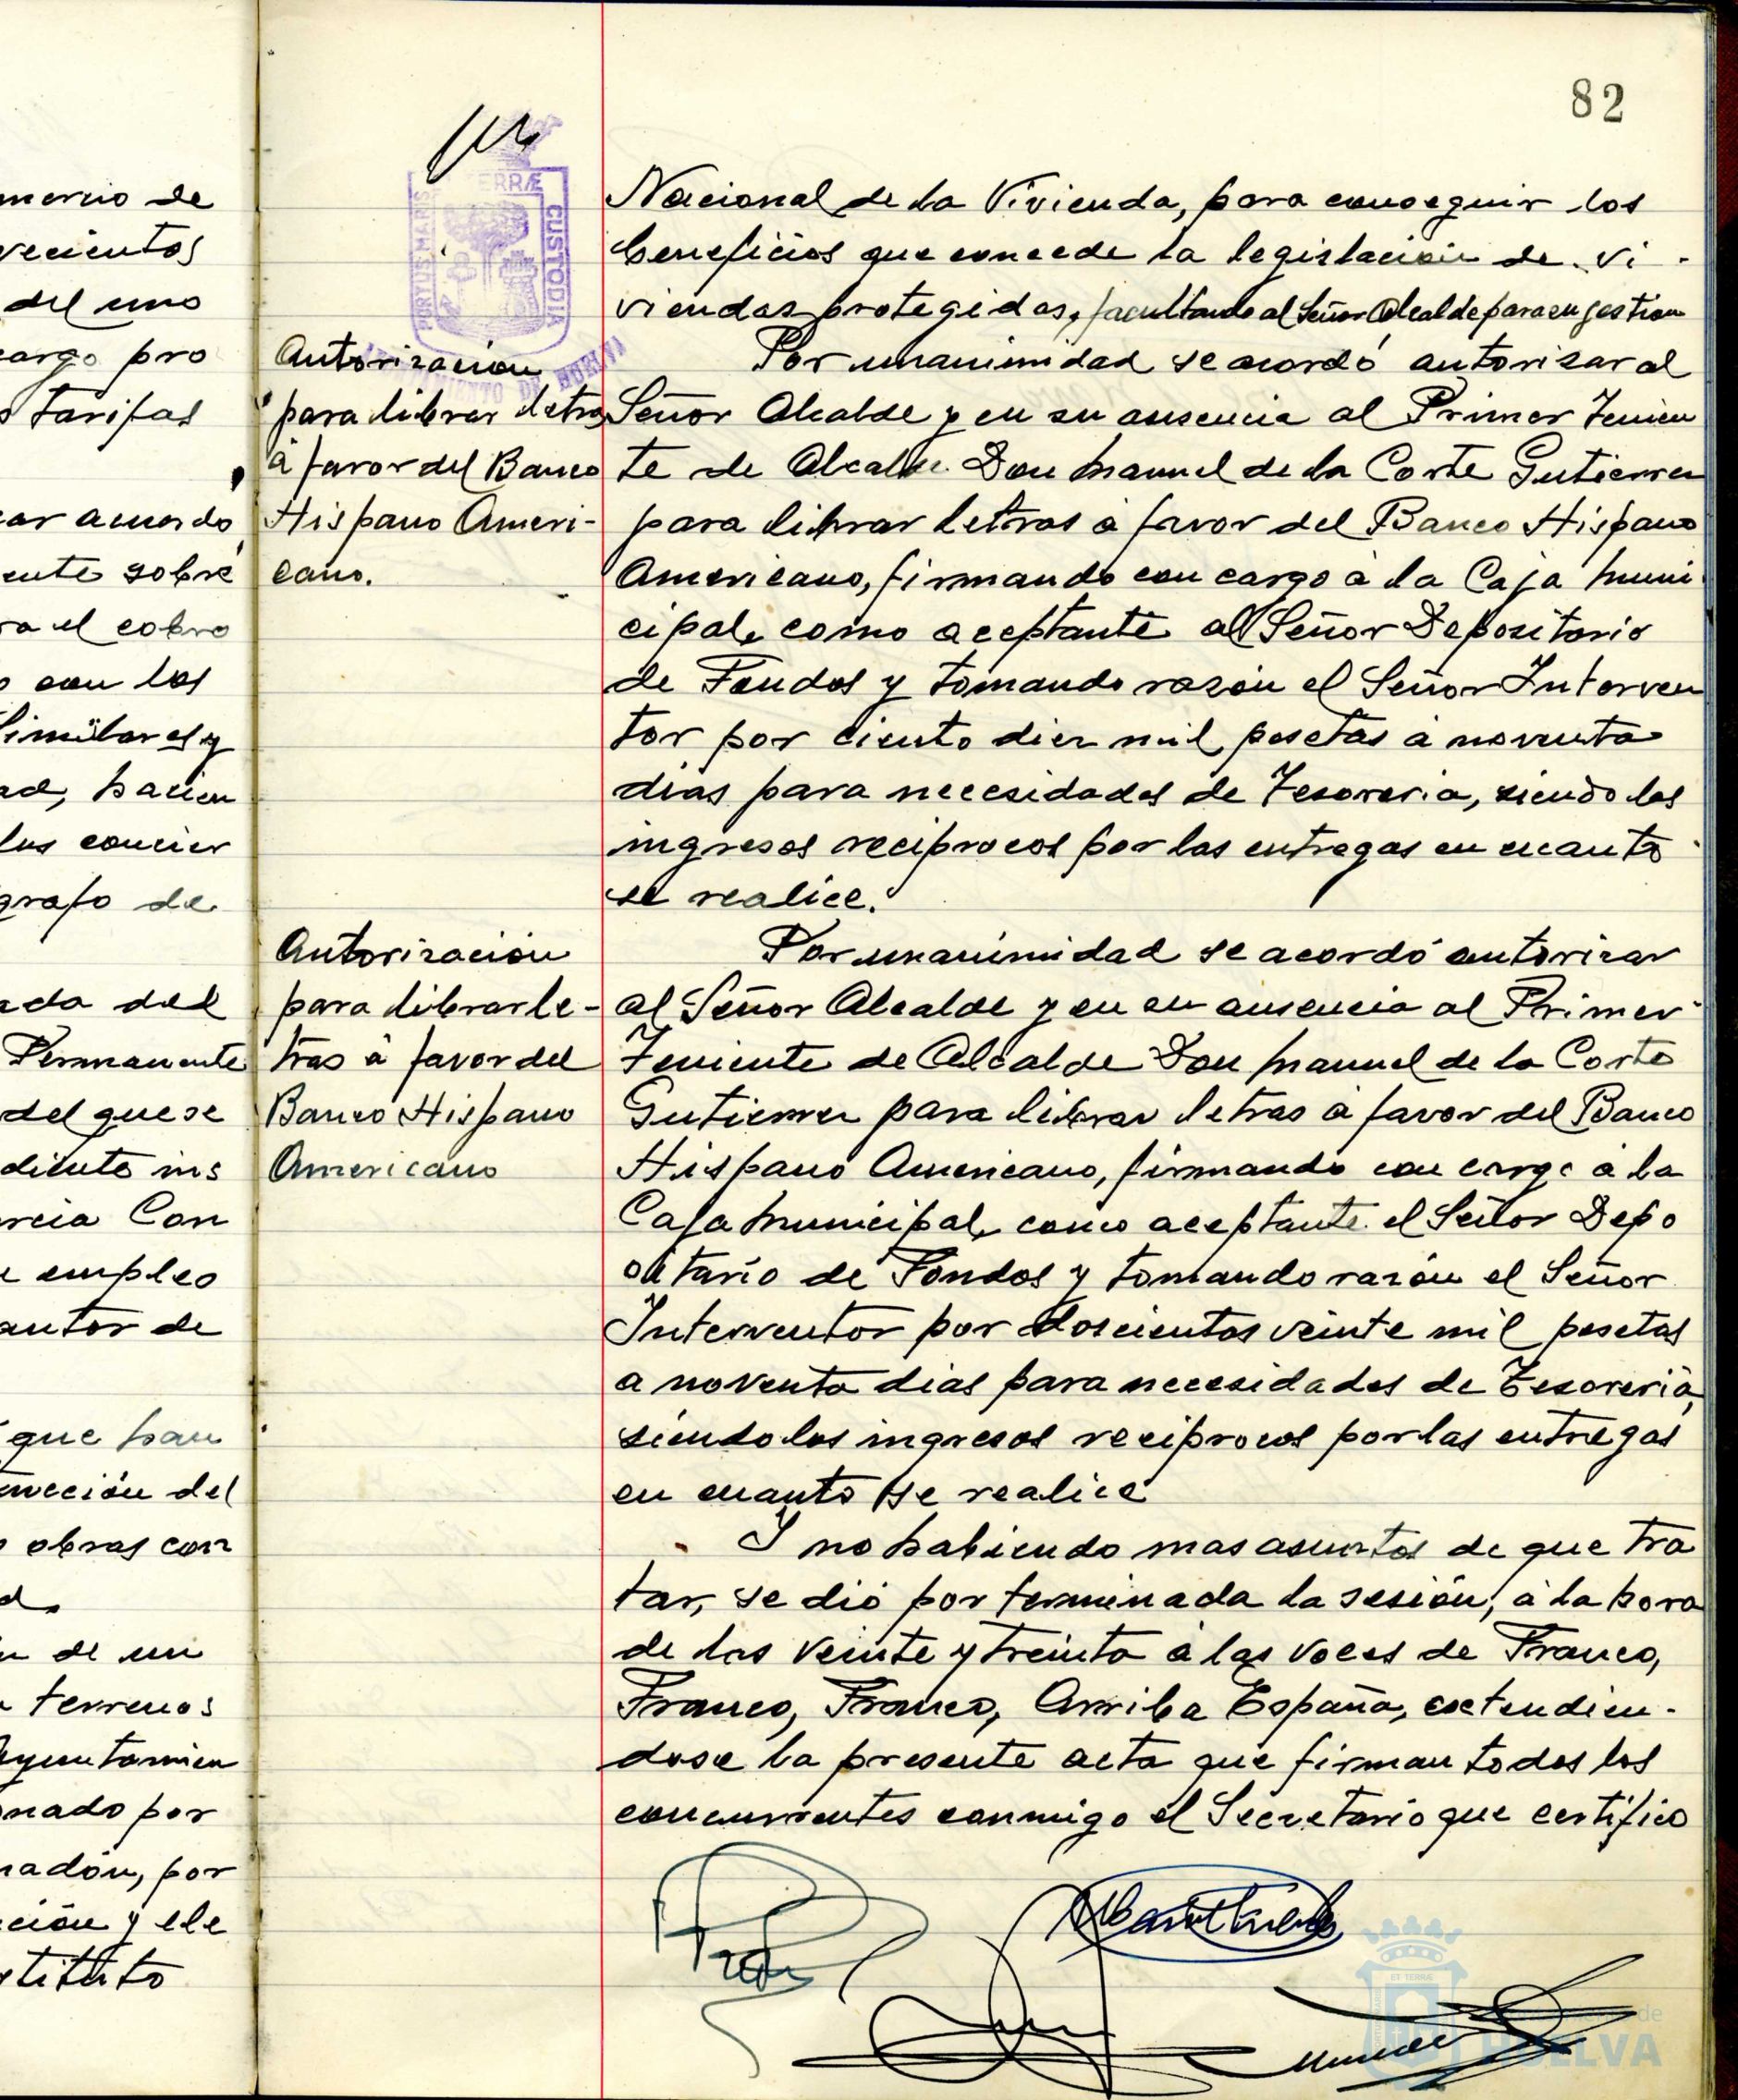 82
mercio de
vecientos
del uno
cargo pro
tarifas
ar acuerdo
ente sobre
ra el cobro
con los
Similares y
ad, hacien
los concier
grafo de
ada del
Permanente
del que se
diente ins
rcia Con
empleo
autor de
que han
ección del
obras con
n de un
terrenos
Ayuntamien
nado por
radón, por
ción y ele
stituto
PORTUS MARIS ERRÆ CUSTODIA
AMIENTO DE HUELVA
Autorización
para librar letras
á favor del Banco
Hispano Ameri-
cano.
Autorización
para librar le-
tras á favor del
Banco Hispano
Americano
Nacional de la Vivienda, para conseguir los
beneficios que concede la legislación de vi-
viendas protegidas, facultando al Señor Alcalde para su gestion
Por unanimidad se acordó autorizar al
Señor Alcalde y en su ausencia al Primer Tenien
te de Alcalde Don Manuel de la Corte Gutierrez
para librar letras á favor del Banco Hispano
Americano, firmando con cargo á la Caja Muni
cipal, como aceptante al Señor Depositario
de Fondos y tomando razón el Señor Interven
tor por ciento diez mil pesetas á noventa
dias para necesidades de Tesoreria, siendo los
ingresos reciprocos por las entregas en cuanto
se realice.
Por unanimidad se acordó autorizar
al Señor Alcalde y en su ausencia al Primer
Teniente de Alcalde Don Manuel de la Corte
Gutierrez para librar letras á favor del Banco
Hispano Americano, firmando con cargo á la
Caja Municipal, como aceptante el Señor Depo
sitario de Fondos y tomando razón el Señor
Interventor por doscientos veinte mil pesetas
a noventa dias para necesidades de Tesoreria,
siendo los ingresos reciprocos por las entregas
en cuanto se realice
Y no habiendo mas asuntos de que tra
tar, se dió por terminada la sesión, á la hora
de las veinte y treinta á las voces de Franco,
Franco, Franco, Arriba España, extendien-
dose la presente acta que firman todos los
concurrentes conmigo el Secretario que certifico
de
HUELVA